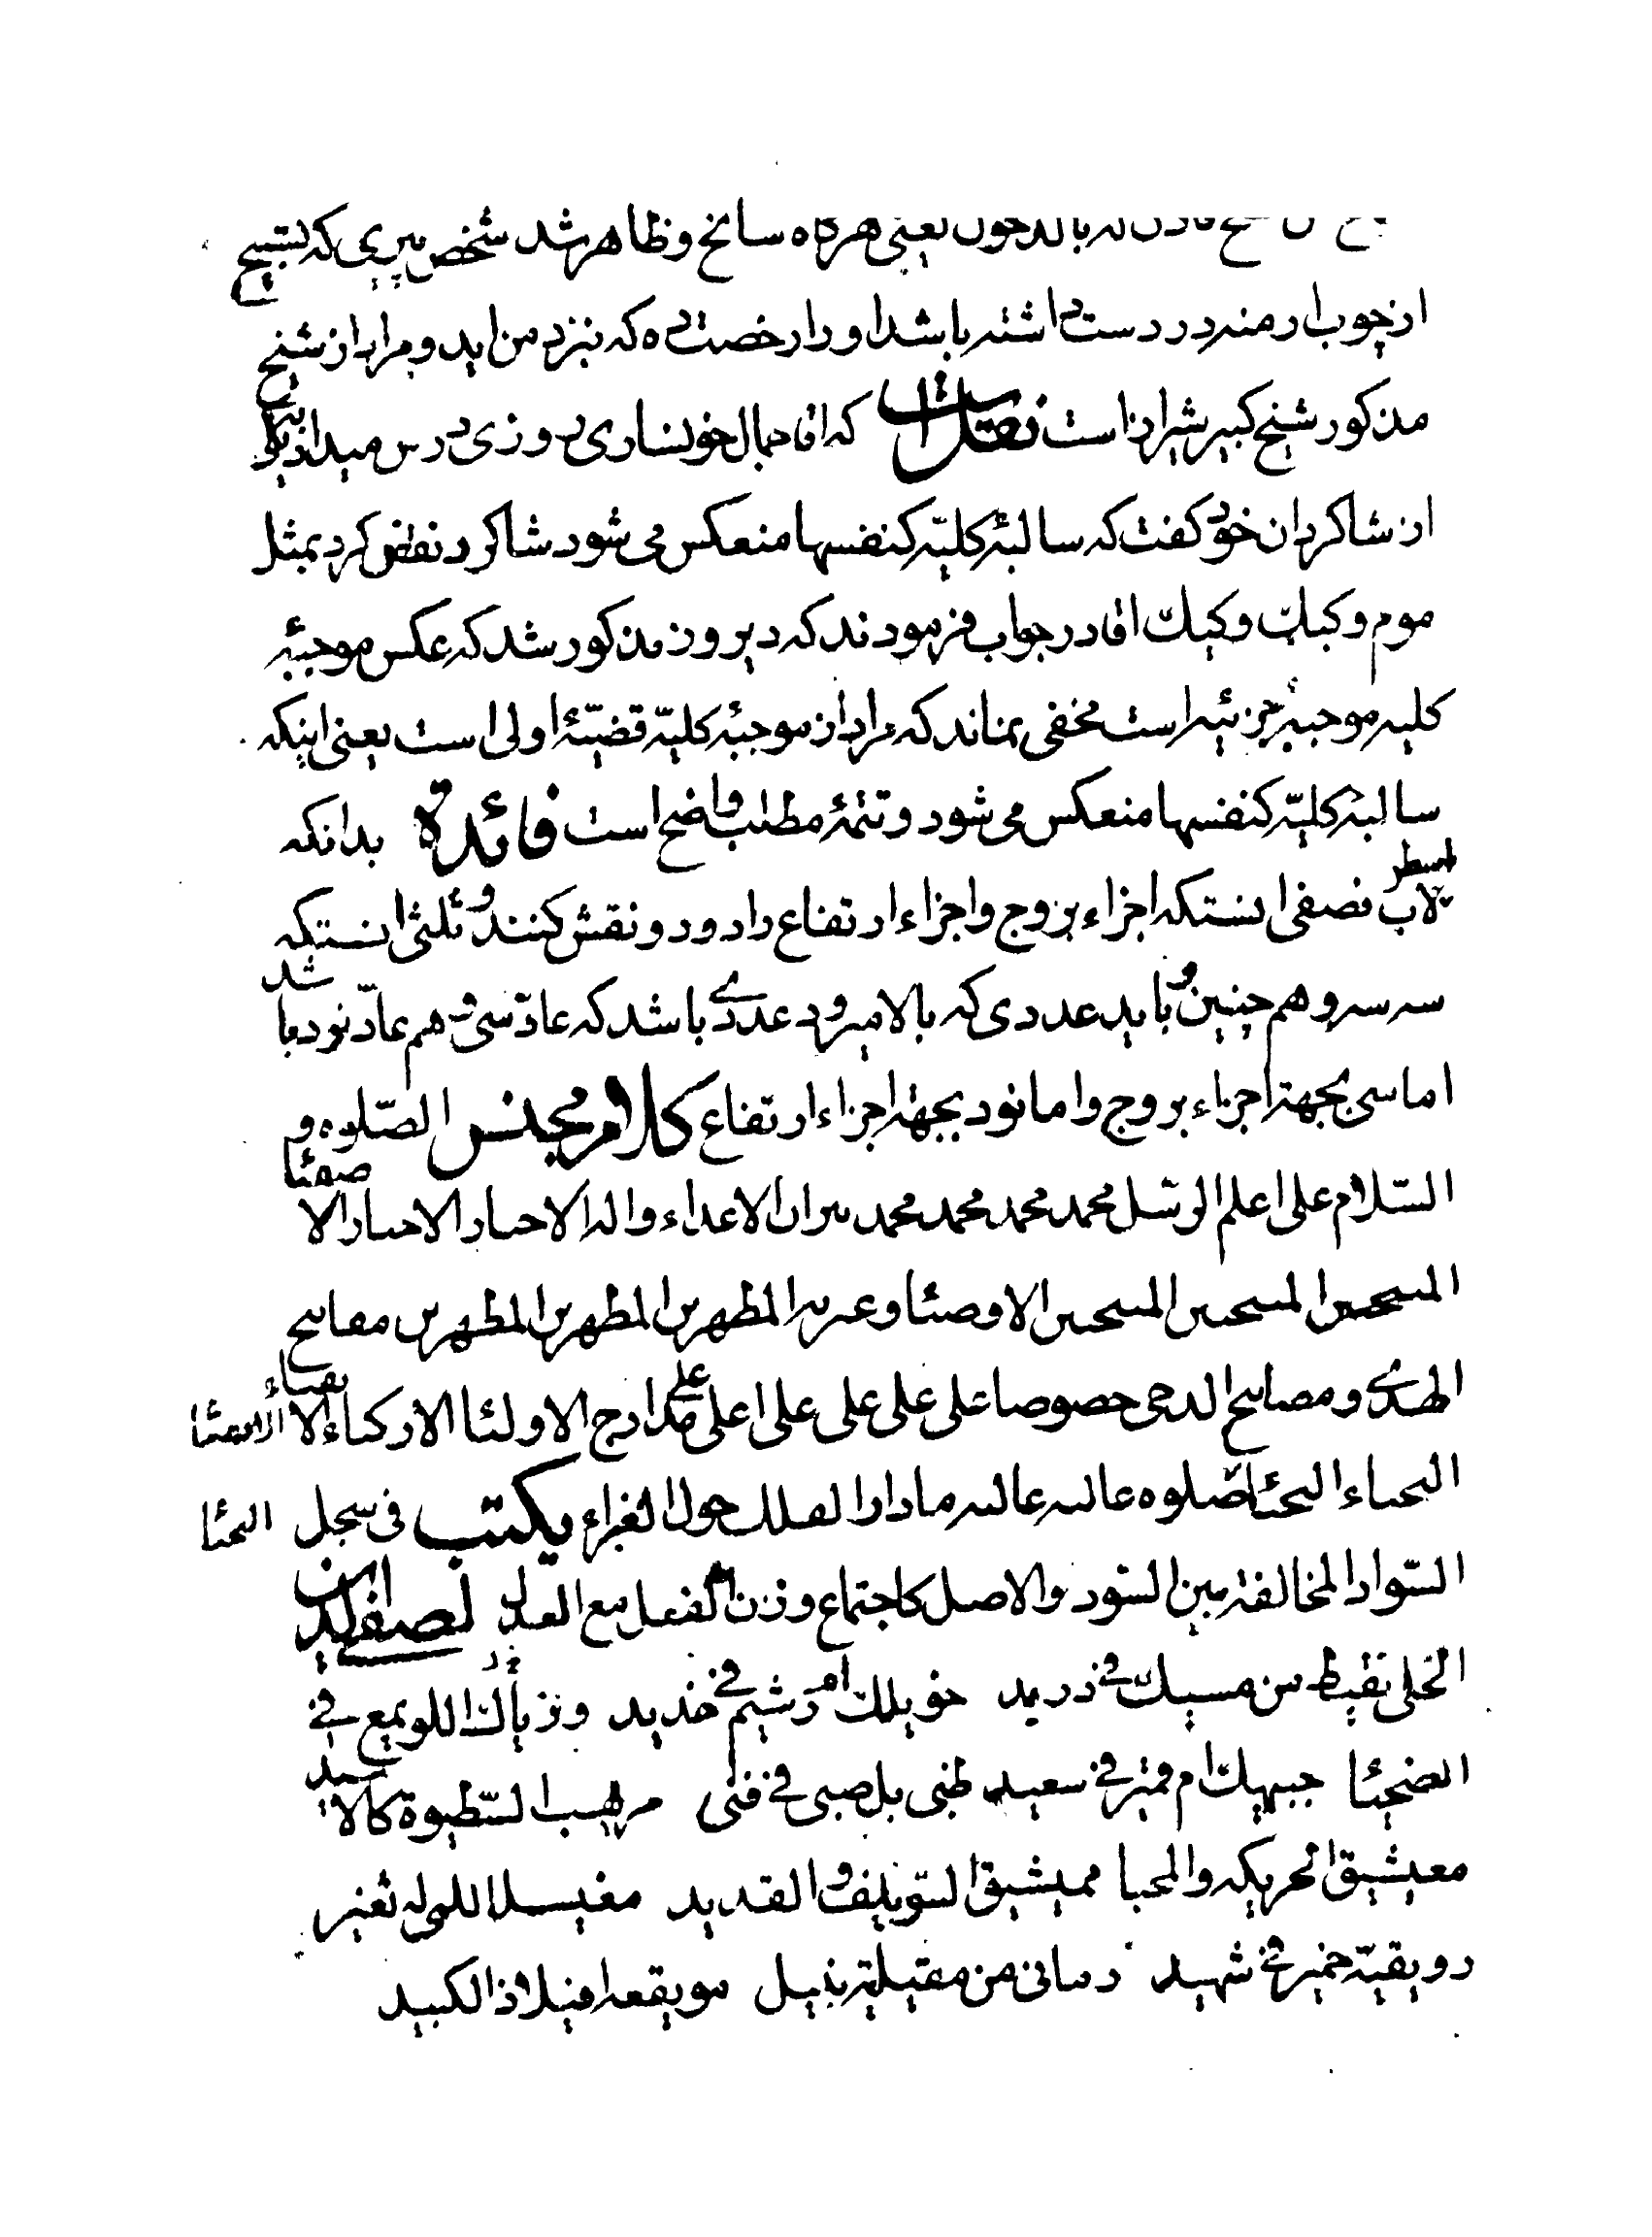 یعنی هرگاه سانح و ظاهر شد شخص پیری که تسبیح
از چوب ارمنه در دست داشته باشد او را رخصت ده که نزد من اید و مراد از شیخ
مذکور شیخ کبیر شیراز است نقلست که اقا جمال خونساری روزی درس میداد بیکی
از شاکردان خود کفت که سالبهٔ کلیّه کنفسها منعکس می شود شاکرد نقض کرد بمثل
موم و کبک و کیک اقا در جواب فرمودند که دیروز مذکور شد که عکس موجبهٔ
کلیه موجبهٔ جزئیه است مخفی نماند که مراد از موجبهٔ کلیّه قضیّهٔ اولی است یعنی اینکه
سالبهٔ کلیّه کنفسها منعکس می شود و تتمهٔ مطلب واضح است فائدة بدانکه
اسطرلاب نصفی انستکه اجزاء بروج و اجزاء ارتفاع را دو دو نقش کنند و ثلثی انستکه
سه سه و هم چنین و باید عددی که بالا میرود عددی باشد که عادّ سی و هم عادّ نود باشد
اما سی بجهة اجزاء بروج و اما نود بجهة اجزاء ارتفاع کلام مجنس الصّلوه و
السّلام علی اعلم الرسل محمد محمد محمد محمد سران الاعداء و اله الاحبار الاحبار الا صفیا
المسحىىں المسحىىں المسحىىں الاوصیا و عىرىه المطهرىں المطهرىں المطهرىں مفاىىح
الهدی و مصاىىح الدحى حصوصا على على على على اعلى على مدارج الاولیا الازکیاء الا ىقیاء
صلوه عالىه عالىه ما دار الفلک حول الغبراء یکتب فی سجل
السّواد المخالفة بین السّود والاصل کاجتماع وزن الفعل مع العدل لصفی الدین
الحلی نقیط من مسیک فی ورید خویلک ام وشیم فی خدید و ذیاک اللویمع فی
الضحیا جبیهک ام قمیر فی سعید ظبی بل صبی فی قبی مرهیب السّطیوة کالاسید
معیشیق الحریکه و المحیا ممیشیق السّویلف و القدید معیسیل اللمی له ثغیر
رویقیّه خمیر فی شهید رمانی من مقیلة نبیل مویقعه افیلاذ الکبید